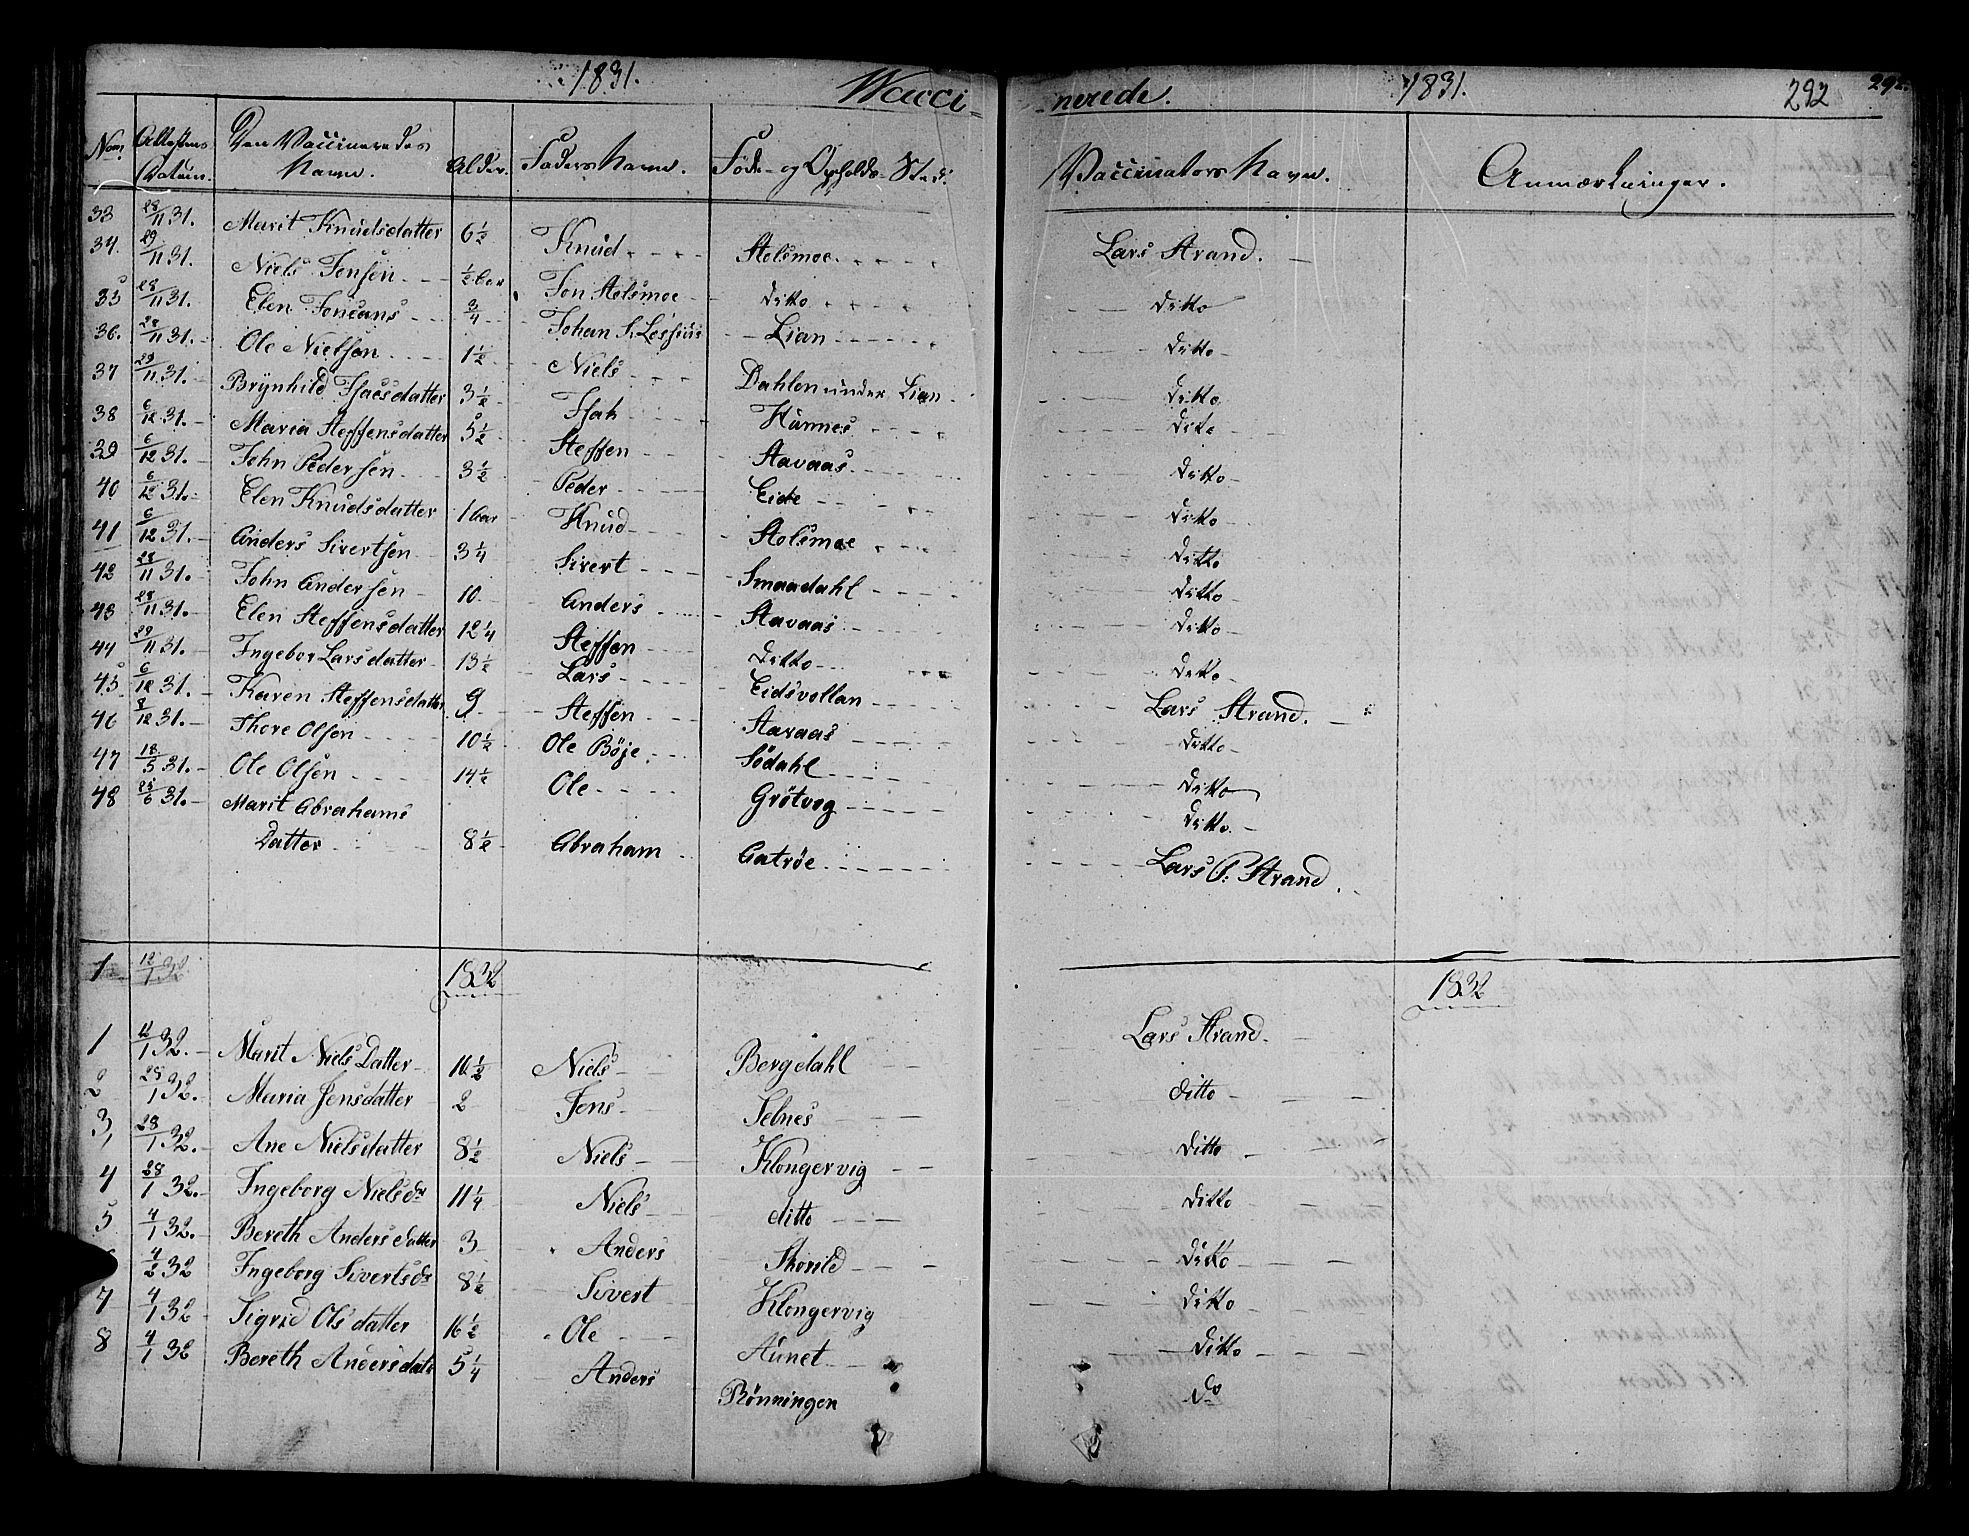 1831. Wacci- nerede. 1831. 292 292.
Nom. Attestens Datum. Den Vaccineredes Navn. Alder. Faders Navn. Föde- og Opholds-Sted. Vaccinators Navn. Anmærkninger.
33 28/11 31. Marit Knudsdatter 6 1/2 Knud Stolsmoe Lars Strand.
34. 29/11 31. Niels Jonsen 1/2 Aar Jon Stolsmoe ditto ditto
35 28/11 31. Elen 3/4 Johan S. Lossius Lian ditto
36. 28/11 31. Ole Nielsen 1 1/2 Niels Dahlen under Lian ditto
37 29/11 31. Brynhild Isacsdatter 3 1/2 Isak Hunnes ditto
38 6/12 31. Maria Steffensdatter 5 1/2 Steffen Stavaas ditto
39 6/12 31. John Pedersen 3 1/2 Peder Eide ditto
40 6/12 31. Elen Knudsdatter 1 Aar Knud Stolsmoe ditto
41 6/12 31. Anders Sivertsen 3 1/4 Sivert Smaadahl ditto
42 28/11 31. John Andersen 10 Anders Stavaas ditto
43 28/11 31. Elen Steffensdatter 12 1/4 Steffen ditto ditto
44 29/11 31. Ingebor Larsdatter 13 1/2 Lars Eidsvollan Lars Strand.
45 6/12 31. Karen Steffensdatter 9 Steffen Stavaas ditto
46 8/12 31. Thore Olsen 10 1/2 Ole Böje Södahl ditto
47 18/5 31. Ole Olsen 14 1/2 Ole Grötveg ditto
48 /6 31. Marit Abrahams
Datter 8 1/2 Abraham Gatröe Lars P. Strand.
1 12/1 32 1832 1832
1 /1 32. Marit Niels Datter 10 1/2 Niels Bergdahl Lars Strand.
2 28/1 32. Maria Jensdatter 2 Jens Selnes ditto
3, 28/1 32. Ane Nielsdatter 8 1/2 Niels Klongervig ditto
4 28/1 32. Ingeborg Nielsdr 11 1/4 Niels ditto ditto
5 4/1 32. Bereth Andersdatter 3 Anders Skorild ditto
4/2 32 Ingeborg Sivertsdr 8 1/2 Sivert Klongervig ditto
7 4/1 32 Sigrid Olsdatter 16 1/2 Ole Aunet ditto
8 4/1 32 Bereth Andersdatr 5 1/4 Anders Rönningen do